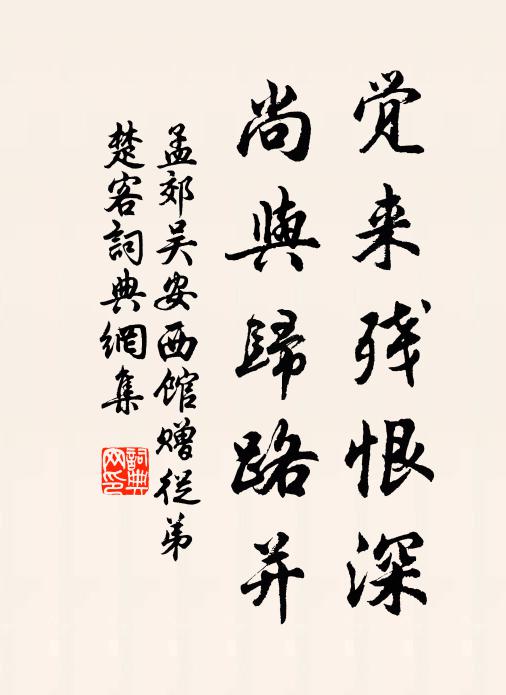 觉来残恨深
尚與歸路并
孟郊吴安西馆赠從弟
楚客詞典網集
詞典网印